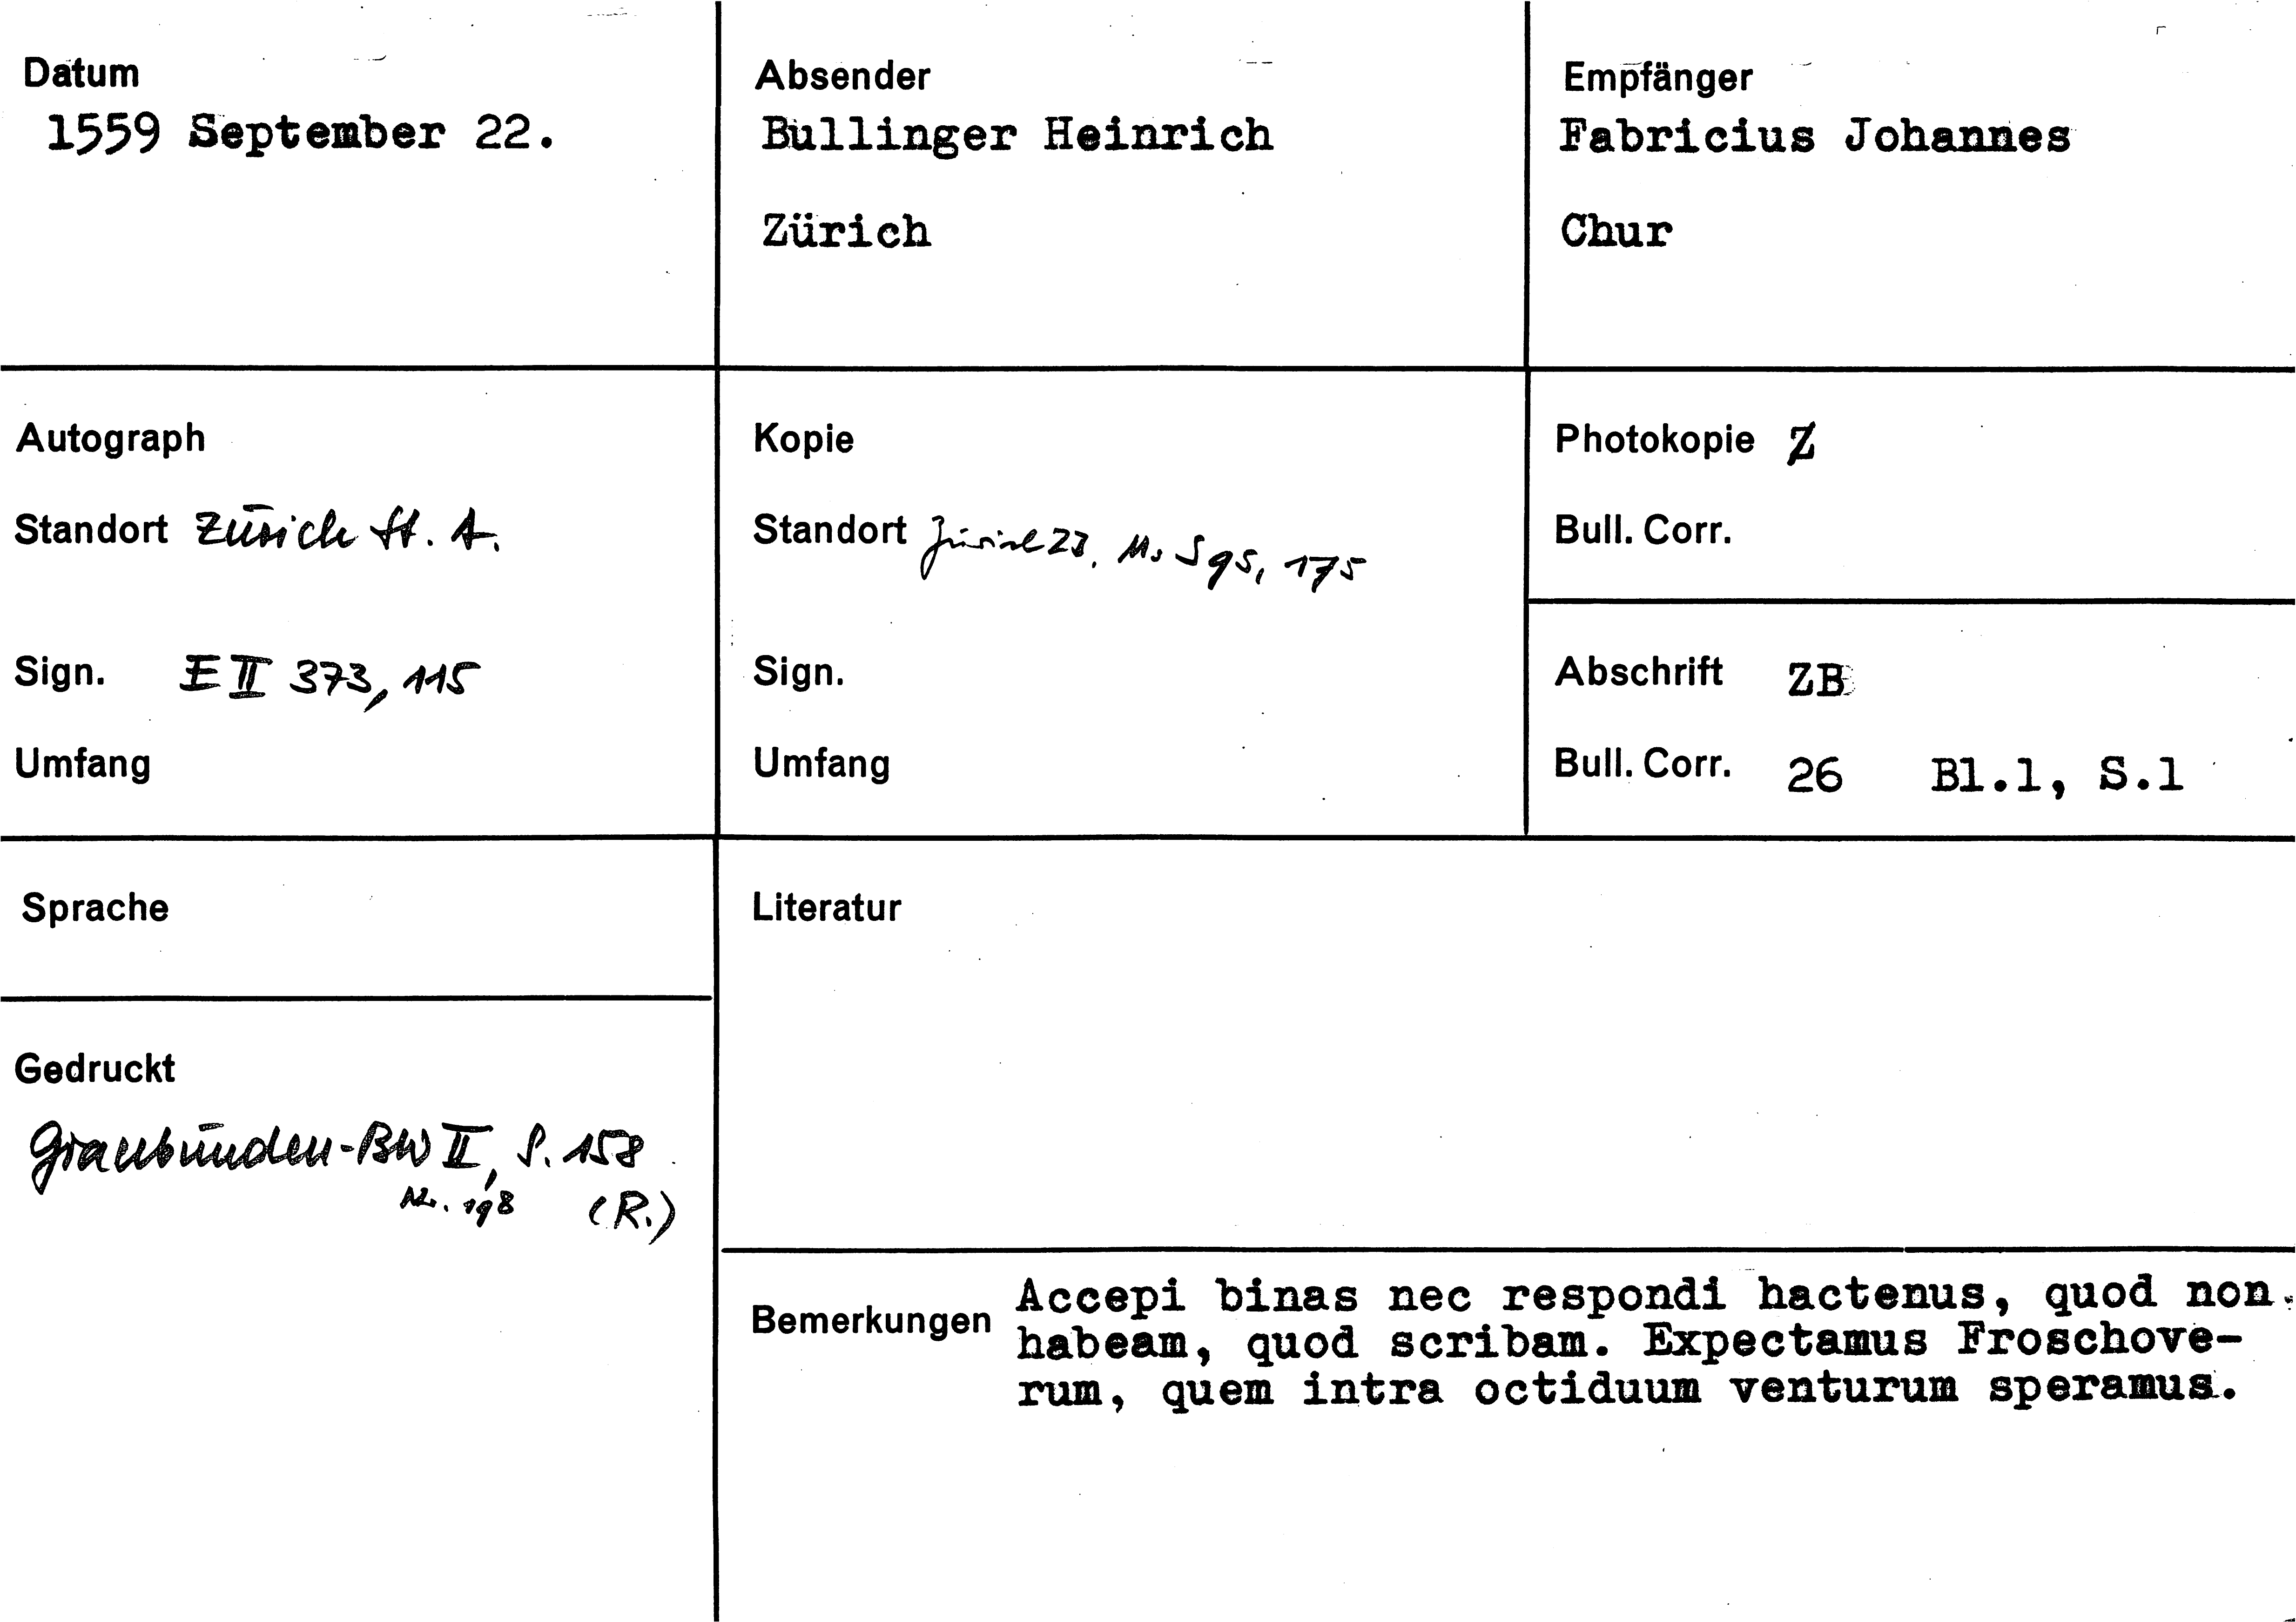 Datum
1559 September 22.
Absender
Bullinger Heinrich
Zürich
Empfänger
Fabricius Johannes
Chur
Autograph
Standort Zürich St. A.
Sign. E II 373, 115
Umfang
Kopie
Standort Zürich ZB, Ms S 95, 175
Sign.
Umfang
Photokopie Z
Bull. Corr.
Abschrift ZB
Bull. Corr. 26 Bl.1, S.1
Sprache
Gedruckt
Graubünden-BW II, S. 158
Nr. 198 (R.)
Literatur
Bemerkungen Accepi binas nec respondi hactenus, quod non
habeam, quod scribam. Expectamus Froschove-
rum, quem intra octiduum venturum speramus.